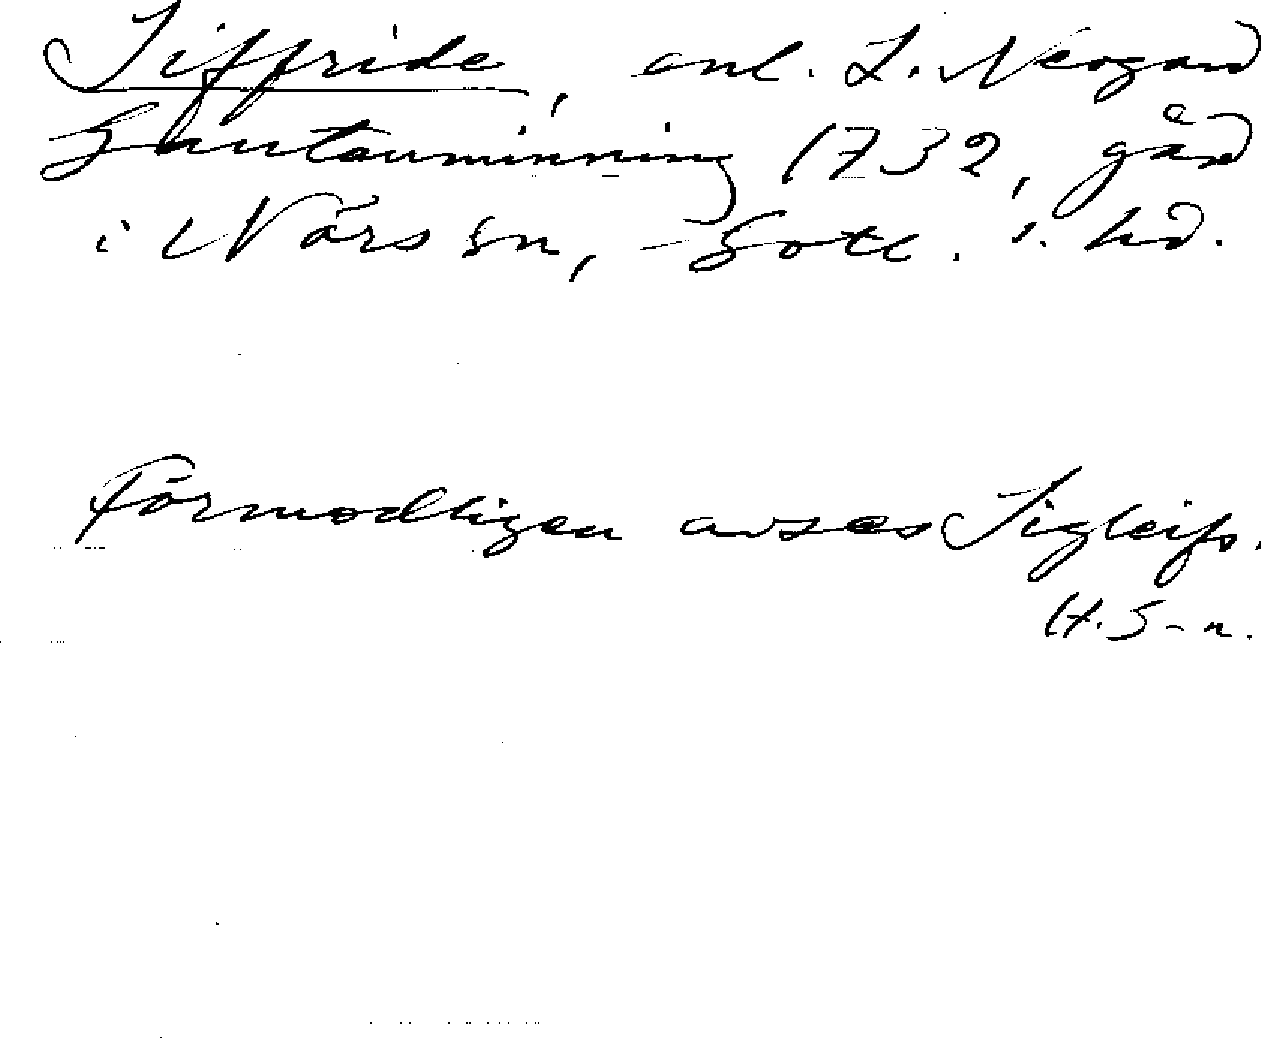 Siffride, enl. L. Neogard
Gautauminning 1732, gård
i Närs sn, Gotl. s. hd.
Förmodligen avses Sigleifs.
H. S-n.